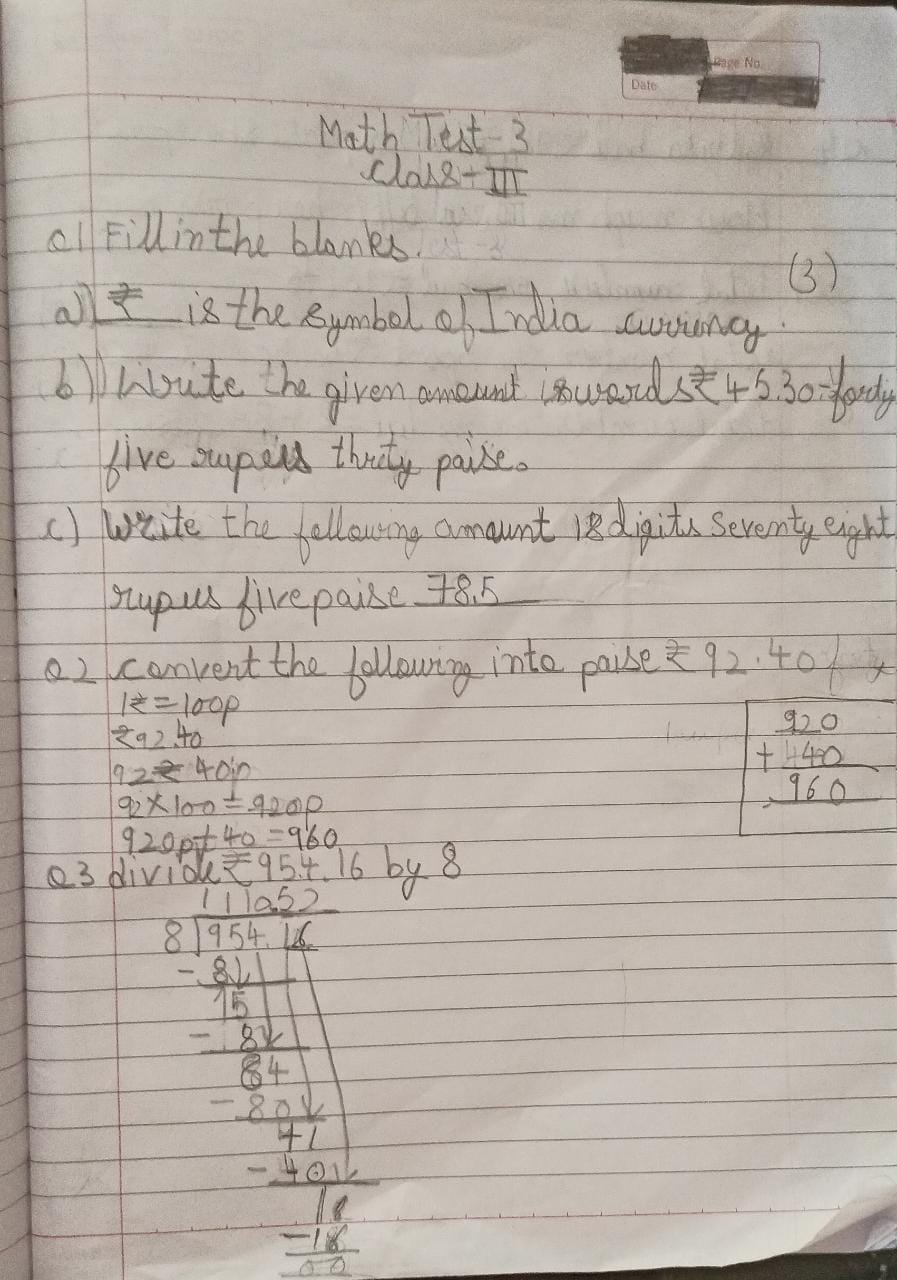 Page No.
Date
Math Test-3
Class-III
Q1 Fill in the blanks.
(3)
a) ₹ is the symbol of India currency.
b) Write the given amount is words ₹45.30-fordy
five rupees thrity paise.
c) Write the following amount is digits Seventy eight
rupees five paise 78.5
Q2 convert the following into paise ₹92.40
1₹=100p
₹92.40
92₹ 40p
92×100=920p
920p+40=960
920
+ 40
960
Q3 divide ₹954.16 by 8
111.52
8 954.16
- 8
15
- 8
84
- 80
41
- 40
18
-18
00